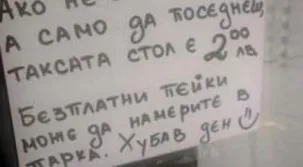 АКО НЕ
А САМО ДА ПОСЕДНЕШ,
ТАКСАТА СТОЛ Е 2⁰⁰ ЛВ.
БЕЗПЛАТНИ ПЕЙКИ
МОЖЕ ДА НАМЕРИТЕ В
ПАРКА. ХУБАВ ДЕН ☺